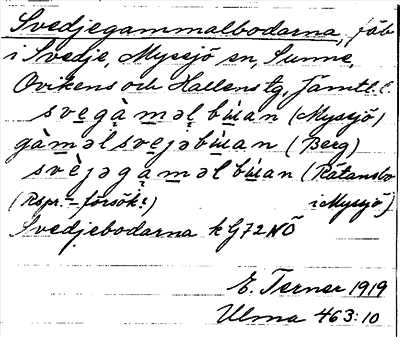 Svedjegammalbodarna, fäb
i Svedje, Myssjö sn, Sunne,
Ovikens och Hallens tg, Jämtl. l.
svegàməl bùan (Myssjö)
gàməl svejəbùan (Berg)
svèjəgaməl bùan (Rätansbo
(Rspr. = försök!) i Myssjö)
Svedjebodarna k G72NÖ
E. Terner 1919
Ulma 463:10